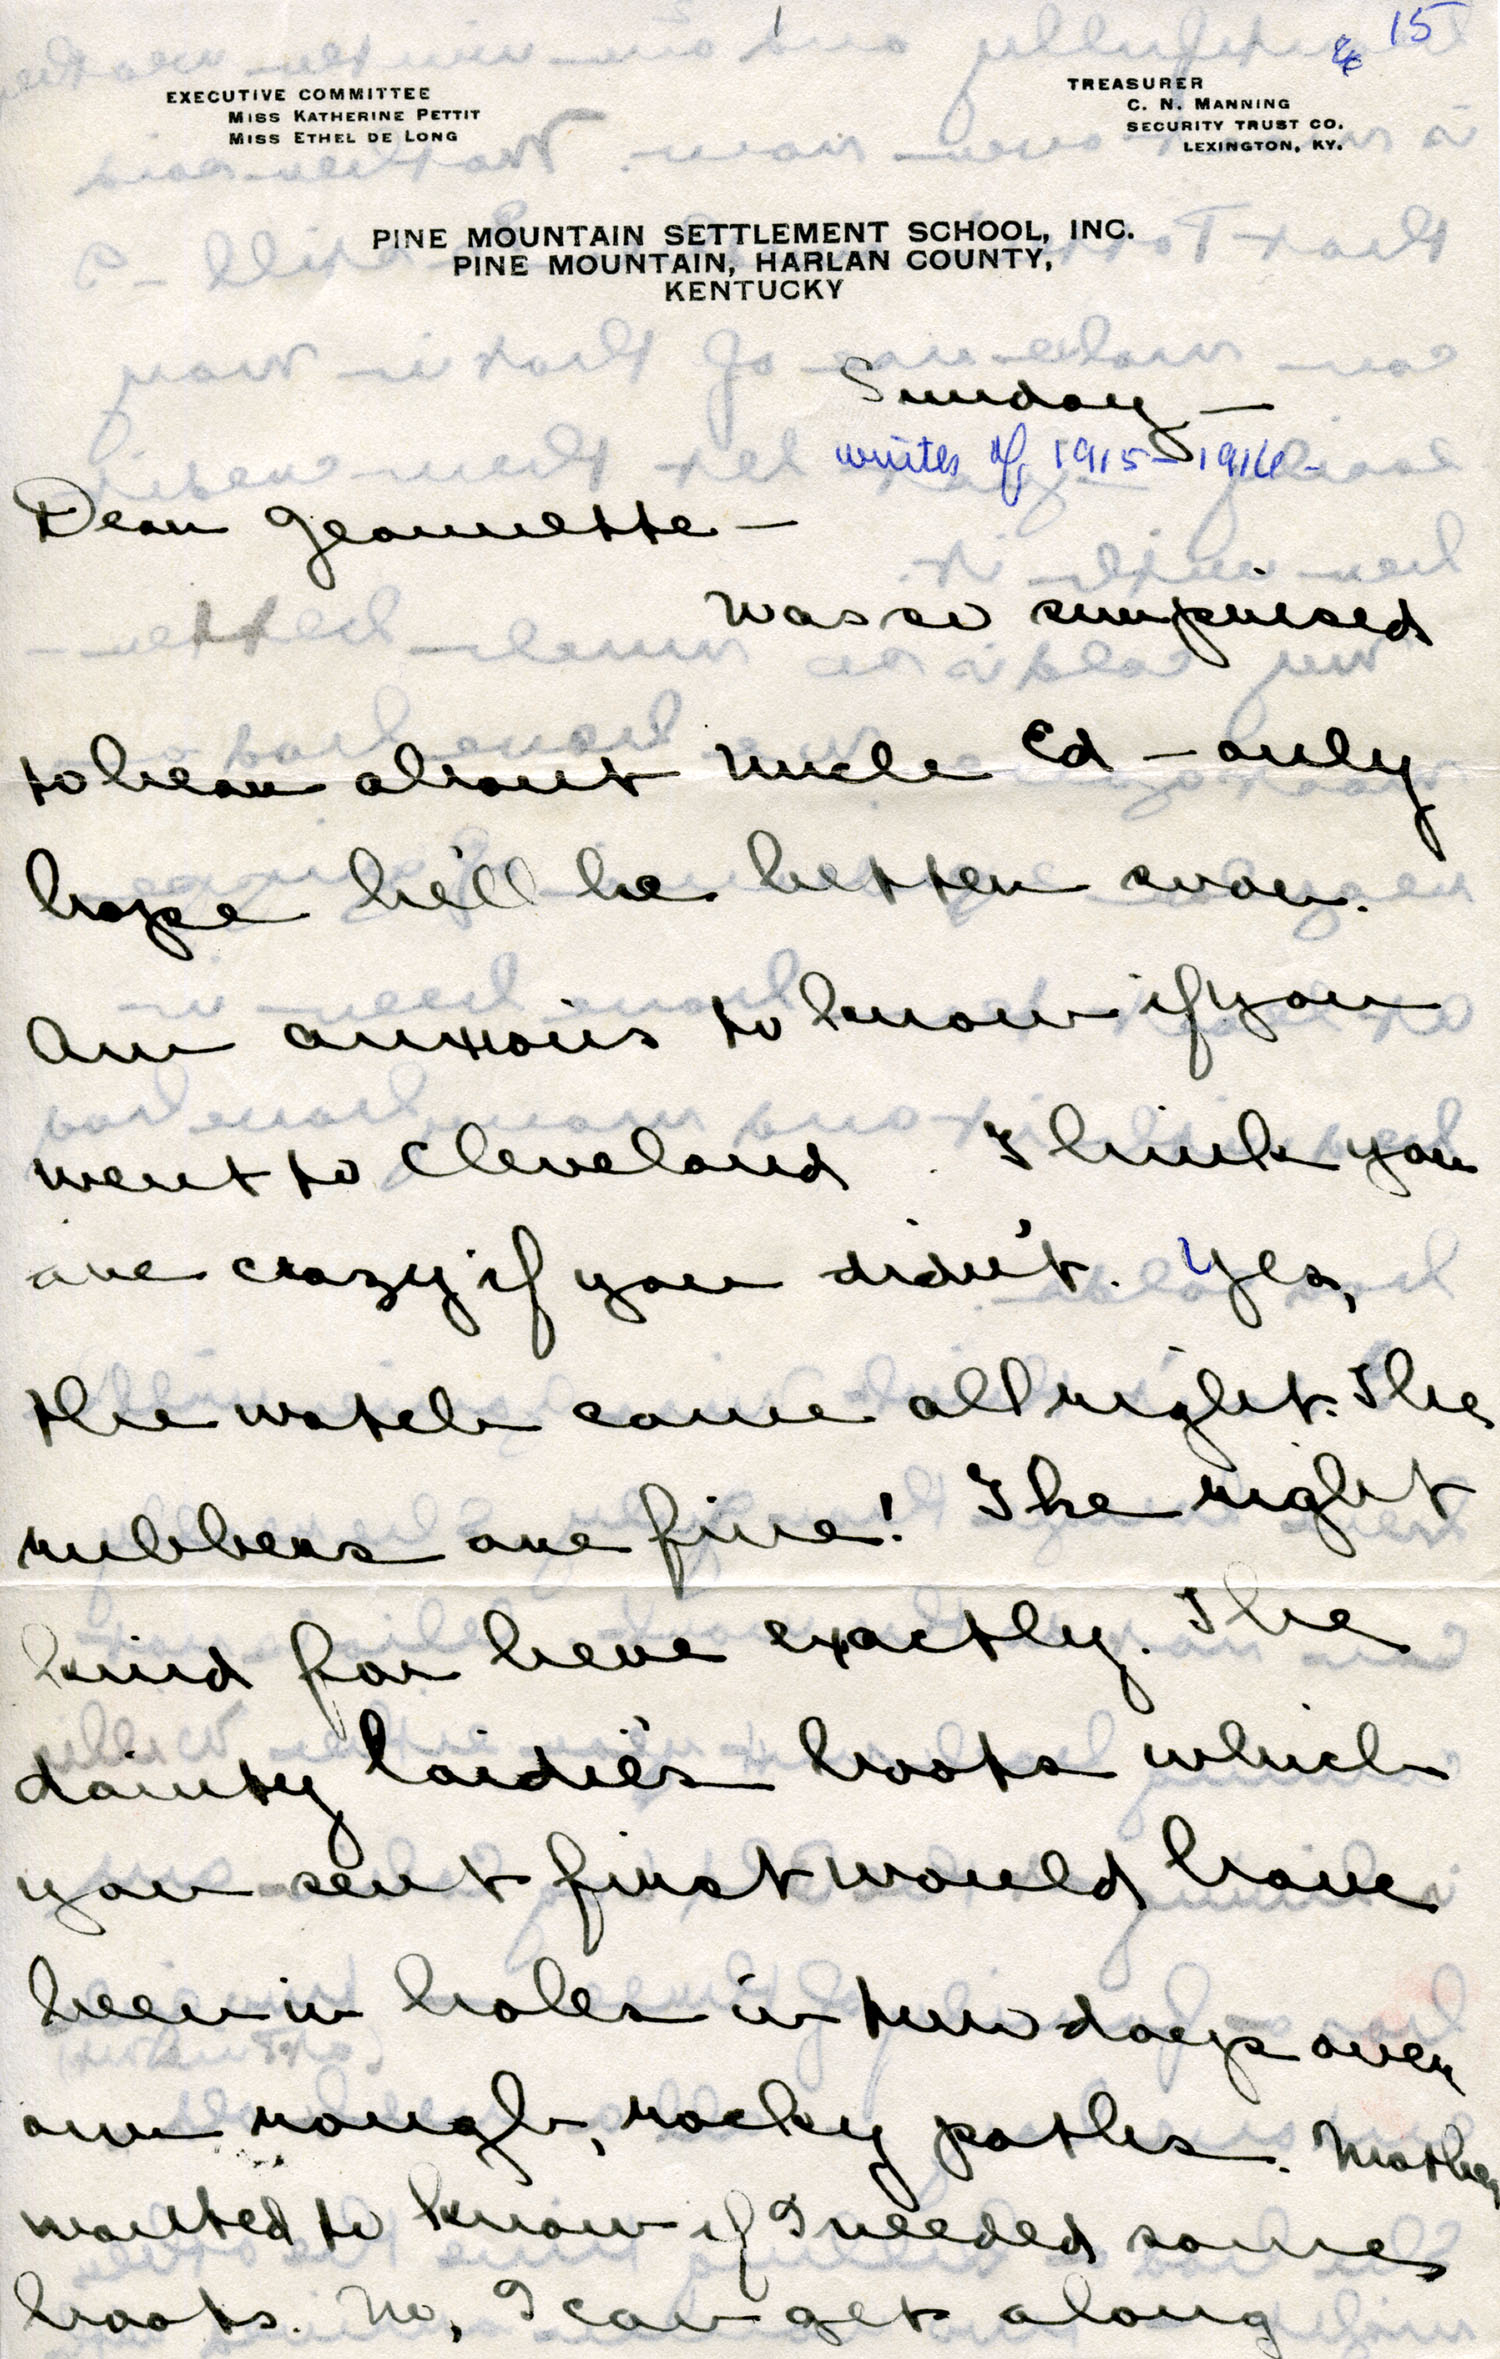 1
15
EXECUTIVE COMMITTEE
MISS KATHERINE PETTIT
MISS ETHEL DE LONG
TREASURER
C. N. MANNING
SECURITY TRUST CO.
LEXINGTON, KY.
PINE MOUNTAIN SETTLEMENT SCHOOL, INC.
PINE MOUNTAIN, HARLAN COUNTY,
KENTUCKY
Sunday —
winter of 1915-1916-
Dear Jeannette —
Was so surprised
to hear about Uncle Ed — only
hope he'll be better soon.
Am anxious to know if you
went to Cleveland. I think you
are crazy if you didn't. Yes,
the watch came all right. The
rubbers are fine! The right
kind for here exactly. The
dainty laidie's boots which
you sent first would have
been in holes in two days over
our rough, rocky paths. Mother
wanted to know if I needed some
boots. No, I can get along